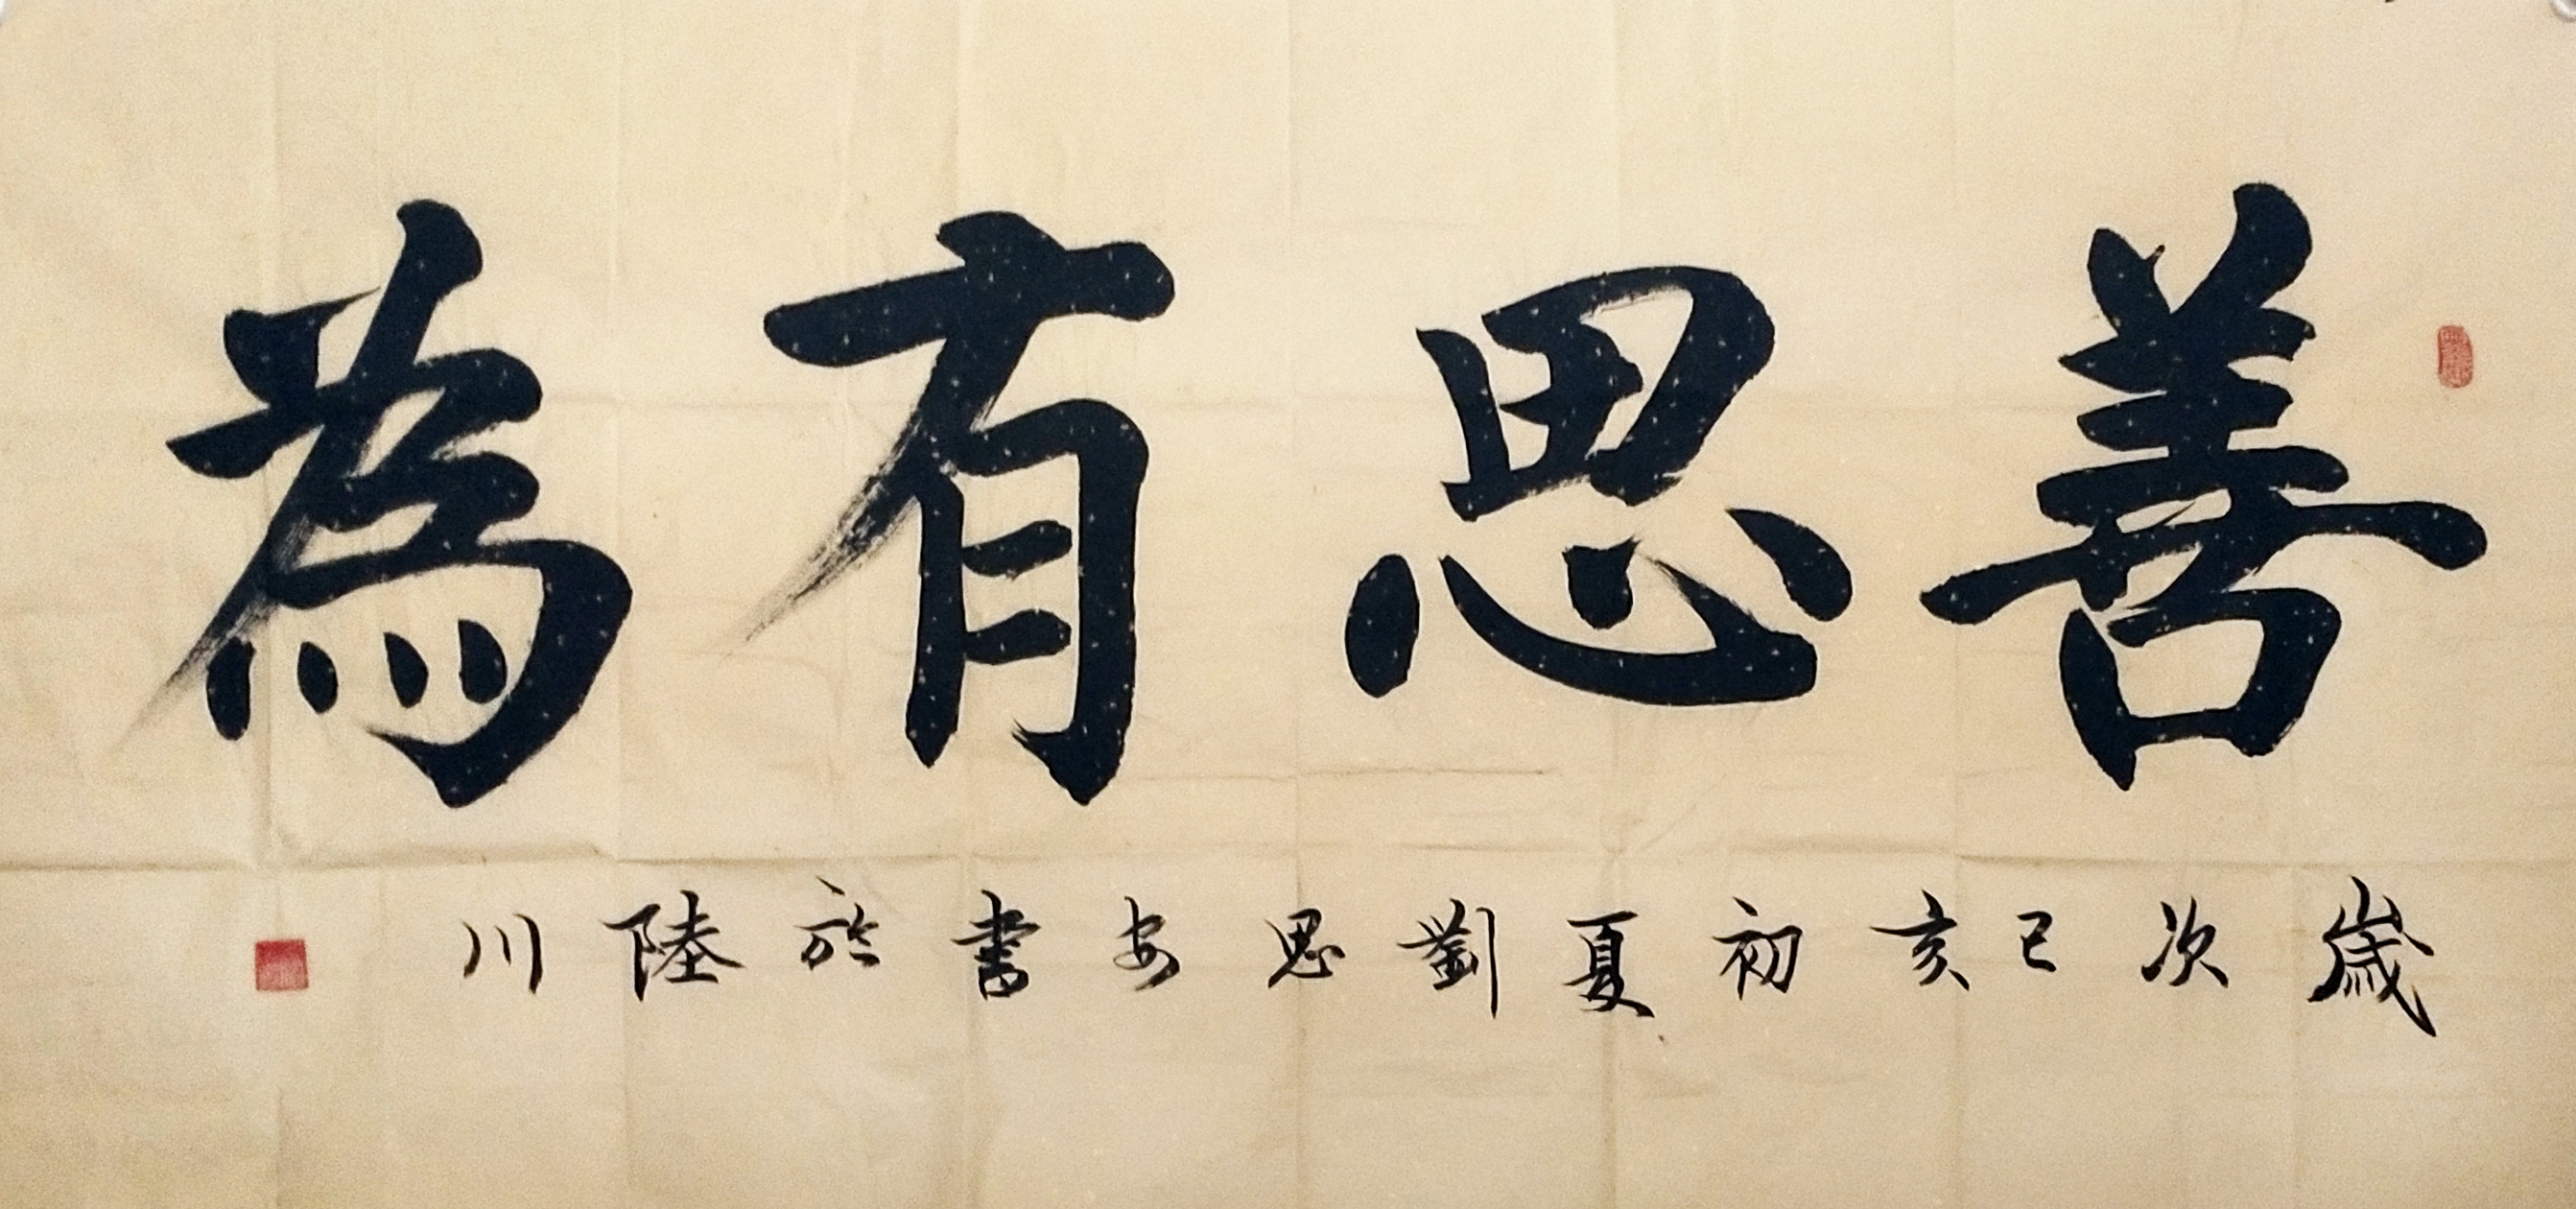 善思有為
歲次己亥初夏劉思安書於陸川